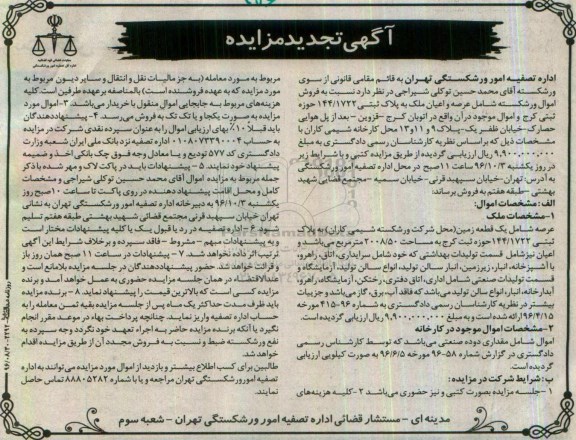 آگهی تجدید مزایده
اداره تصفیه امور ورشکستگی تهران به قائم مقامی قانونی از سوی
ورشکسته آقای محمد حسین توکلی شیراجی در نظر دارد نسبت به فروش
اموال ورشکسته شامل عرصه و اعیان ملک به پلاک ثبتی ۱۴۴/۱۷۲۲ حوزه
ثبتی کرج و اموال موجود در آن واقع در اتوبان کرج - قزوین - بعد از پل هوایی
حصارک - خیابان ظفر یک - پلاک ۹ و ۱۱ و ۱۳ محل کارخانه شیمی کاران با
مشخصات ذیل که براساس نظریه کارشناسان رسمی دادگستری به مبلغ
۹,۹۰۰,۰۰۰,۰۰۰ ریال ارزیابی گردیده از طریق مزایده کتبی و با شرایط زیر
در روز یکشنبه ۹۶/۱۰/۳ ساعت ۱۱ صبح در محل اداره تصفیه امور ورشکستگی
به آدرس: تهران - خیابان سپهبد قرنی - خیابان سمیه - مجتمع قضائی شهید
بهشتی - طبقه هفتم به فروش برساند:
الف: مشخصات اموال:
۱- مشخصات ملک
عرصه شامل یک قطعه زمین (محل شرکت ورشکسته شیمی کاران) به پلاک
ثبتی ۱۴۴/۱۷۲۲ حوزه ثبت کرج به مساحت ۲۰۰۸/۵۰ مترمربع می‌باشد و
اعیان نیز شامل قسمت تولیدات بهداشتی که خود شامل سرایداری، اتاق، راهرو،
با آشپزخانه، انبار، زیرزمین، انبار سالن تولید، انواع سالن تولید، آزمایشگاه و
قسمت تولیدات صنعتی شامل اداری، اتاق دفتری، رختکن، آزمایشگاه، راهرو،
آبدارخانه، انبار، انواع سالن تولید می‌باشد که فاقد آب، برق، گاز می‌باشد و جزییات
بیشتر در نظریه کارشناسان رسمی دادگستری به شماره ۹۶-۴۱۵ مورخه
۹۶/۴/۱۵ ارائه شده است و به مبلغ ۹,۹۰۰,۰۰۰,۰۰۰ ریال ارزیابی گردیده است.
۲- مشخصات اموال موجود در کارخانه
اموال شامل مقداری دوده صنعتی می‌باشد که توسط کارشناس رسمی
دادگستری در گزارش شماره ۵۸-۹۶ مورخه ۹۶/۶/۵ به صورت کیلویی ارزیابی
گردیده است.
ب: شرایط شرکت در مزایده:
۱- جلسه مزایده بصورت کتبی و نیز حضوری می‌باشد ۲- کلیه هزینه‌های
مربوط به مورد معامله (به جز مالیات نقل و انتقال و سایر دیون مربوط به
مورد مزایده که به عهده فروشنده است) بالمناصفه برعهده طرفین است. کلیه
هزینه‌های مربوط به جابجایی اموال منقول با خریدار می‌باشد. ۳- اموال مورد
مزایده به صورت یکجا و یا تک تک به فروش می‌رسد. ۴- پیشنهاددهندگان
باید قبلاً ۱۰٪ بهای ارزیابی اموال را به عنوان سپرده نقدی شرکت در مزایده
به حساب ۰۱۰۸۰۷۳۳۹۰۰۰۴ اداره تصفیه نزد بانک ملی ایران شعبه وزارت
دادگستری کد ۵۷۷ تودیع و یا معادل وجه فوق چک بانکی اخذ و ضمیمه
پیشنهاد خود نمایند. ۵- پیشنهادات باید در پاکت لاک و مهر شده با ذکر
جمله مربوط به مزایده اموال آقای محمد حسین توکلی شیراجی و مشخصات
کامل و محل اقامت پیشنهاد دهنده در روی پاکت تا ساعت ۱۰ صبح روز
یکشنبه ۹۶/۱۰/۳ به دبیرخانه اداره تصفیه امور ورشکستگی تهران به نشانی
تهران خیابان سپهبد قرنی مجتمع قضائی شهید بهشتی طبقه هفتم تسلیم
شود. ۶- اداره تصفیه در رد یا قبول یک یا کلیه پیشنهادات مختار است
و به پیشنهادات مبهم - مشروط - فاقد سپرده و برخلاف شرایط این آگهی
ترتیب اثر داده نخواهد شد. ۷- پیشنهادات در ساعت ۱۱ صبح همان روز باز
و قرائت خواهد شد. حضور پیشنهاددهندگان در جلسه مزایده بلامانع است و
عنداالاقتضاء در همان جلسه مزایده حضوری به عمل خواهد آمد و برنده
مزایده کسی است که بالاترین قیمت را پیشنهاد نماید. ۸- برنده مزایده
باید ظرف مدت حداکثر یک ماه پس از جلسه مزایده بقیه ثمن معامله را به
حساب اداره تصفیه واریز نماید. چنانچه پرداخت بهاء در موعد مقرر انجام
نگیرد یا آنکه برنده مزایده حاضر به اجراء تعهد خود نگردد وجه سپرده به
نفع ورشکسته ضبط و نسبت به فروش مجدد آن از طریق مزایده اقدام
خواهد شد.
طالبین برای کسب اطلاع بیشتر و بازدید از اموال مورد مزایده می‌توانند به اداره
تصفیه امور ورشکستگی تهران مراجعه و یا با شماره ۸۸۸۰۵۲۸۲ تماس حاصل
نمایند.
مدینه ای - مستشار قضائی اداره تصفیه امور ورشکستگی تهران - شعبه سوم